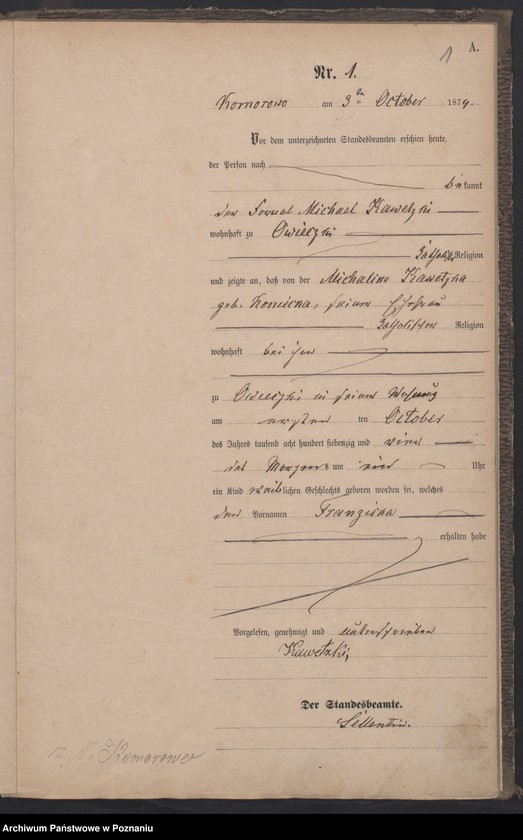 1 A.
Nr. 1.
Komorowo am 3ten October 1874.
Vor dem unterzeichneten Standesbeamten erschien heute,
der Person nach
bekannt
der Fornal Michael Kawetzki
wohnhaft zu Owieczki
katholischer Religion
und zeigte an, daß von der Michalina Kawetzka
geb. Konieczna, seiner Ehefrau
katholischer Religion
wohnhaft bei ihm
zu Owieczki in seiner Wohnung
am ersten ten October
des Jahres tausend acht hundert siebenzig und vier
des Morgens um ein Uhr
ein Kind weiblichen Geschlechts geboren worden sei, welches
den Vornamen Franziska
erhalten habe
Vorgelesen, genehmigt und unterschrieben
Kawetzki,
Der Standesbeamte.
Sellentin.
Komorowo
Archiwum Państwowe w Poznaniu